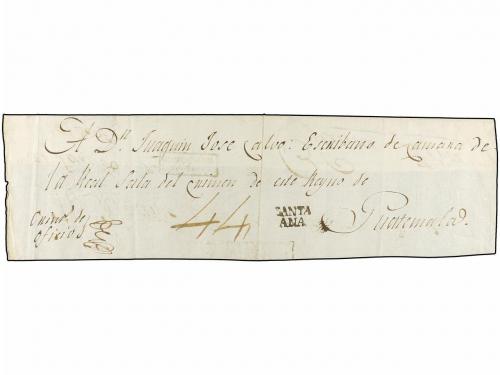 A Dn. Juaquin Jose Calvo: Escribano de Camara de
la Real Sala del crimen de este Reyno de
Guatemala.
44
SANTA
ANA
de
oficio